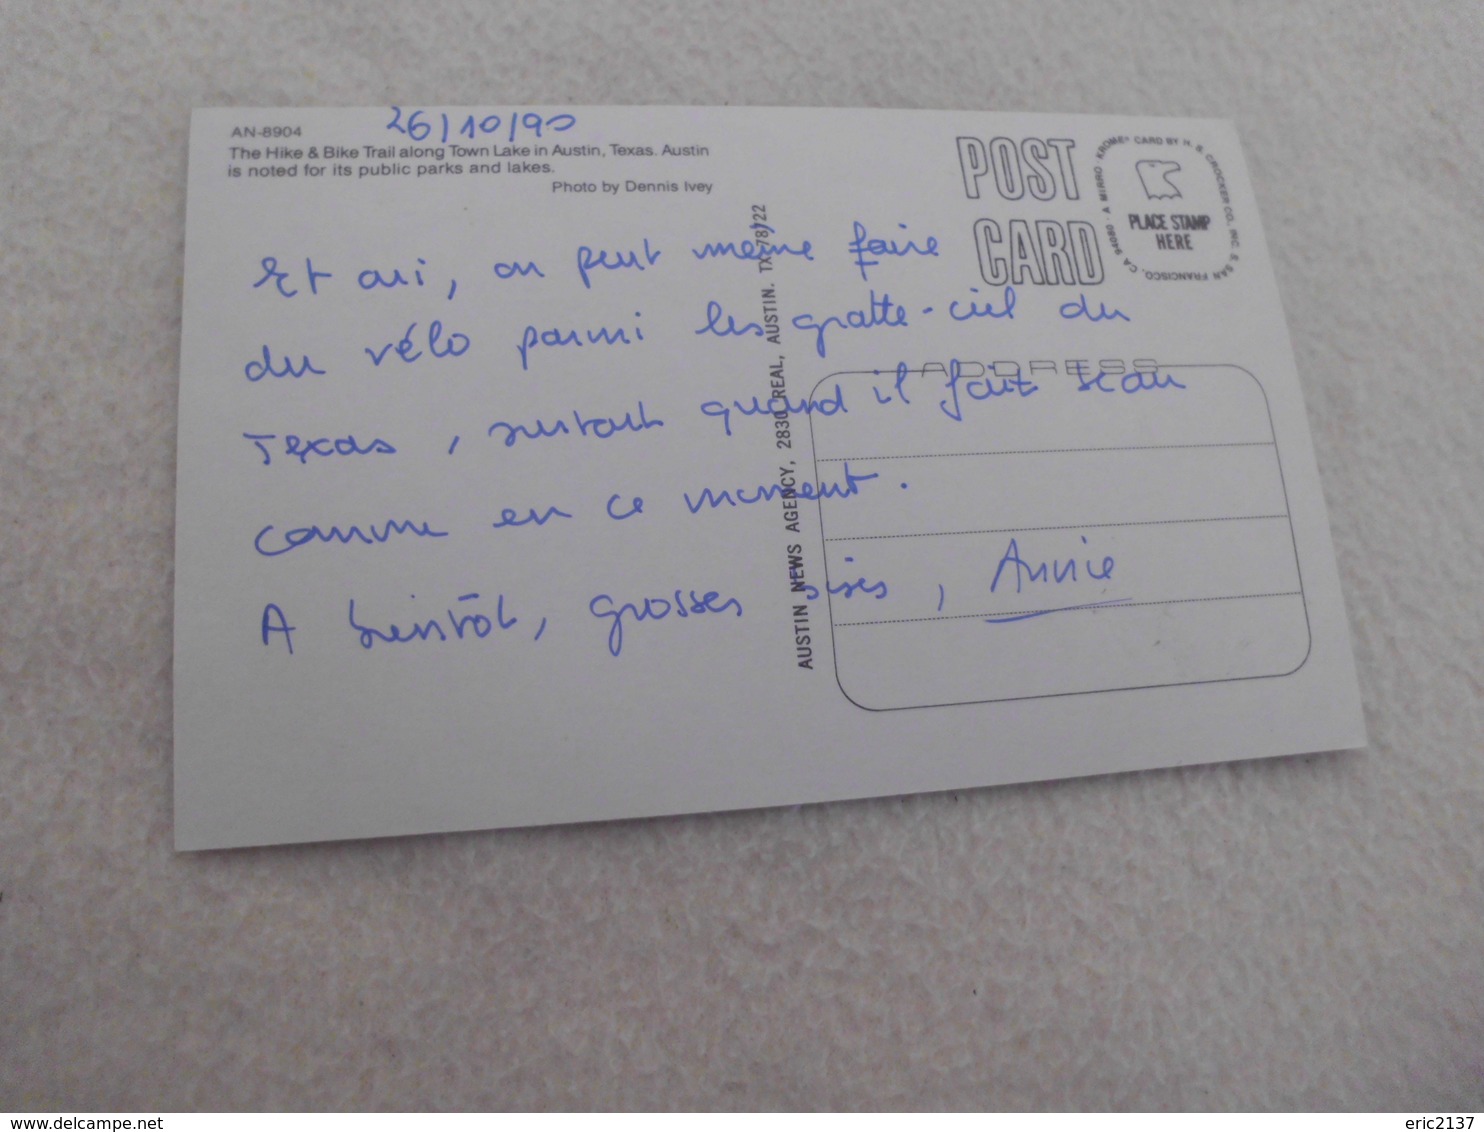 AN-8904
26/10/90
The Hike & Bike Trail along Town Lake in Austin, Texas. Austin
is noted for its public parks and lakes.
Photo by Dennis Ivey
Et oui, on peut même faire
du vélo parmi les gratte-ciel du
Texas, surtout quand il fait beau
comme en ce moment.
A bientôt, grosses bises, Annie
AUSTIN NEWS AGENCY, 2830 REAL, AUSTIN. TX 78722
POST
CARD
A MIRRO-KROME® CARD BY H. S. CROCKER CO., INC. S. SAN FRANCISCO, CA 94080
PLACE STAMP
HERE
ADDRESS
delcampe.net
eric2137